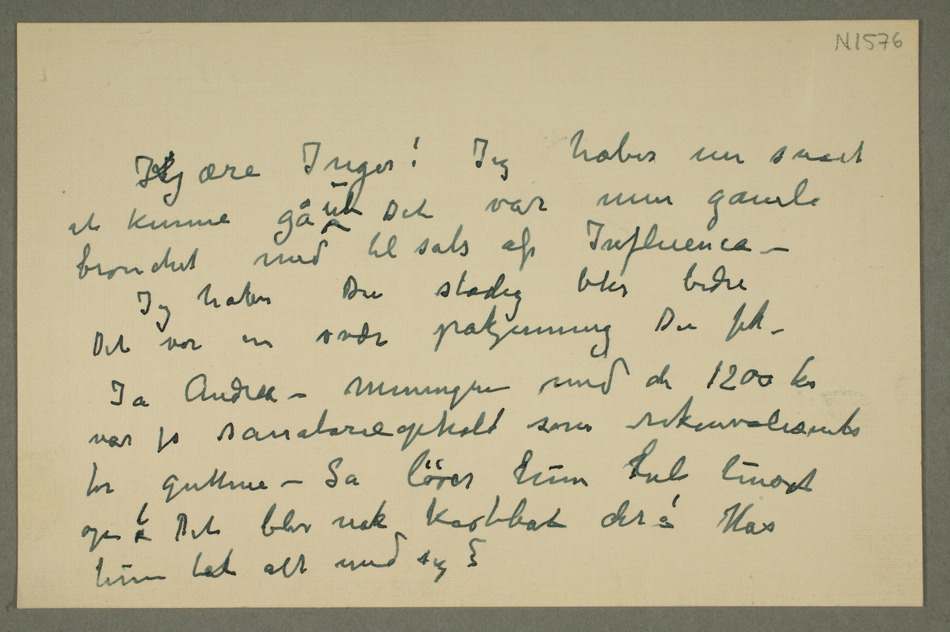 N1576
Kjære Inger! Jeg håber nu snart
at kunne gå ut Det var min gamle
bronchit med tilsats af Influenca –
Jeg håber Du stadig blir bedre
Det var en svær påkjenning Du fik –
Ja Andrea – Meningen med de 1200 kr
var jo sanatorieophold som rekonvalesents
for guttene – Så lejer hun hele huset
op Det blir nok kostbat det! Har
hun tat alt med sig